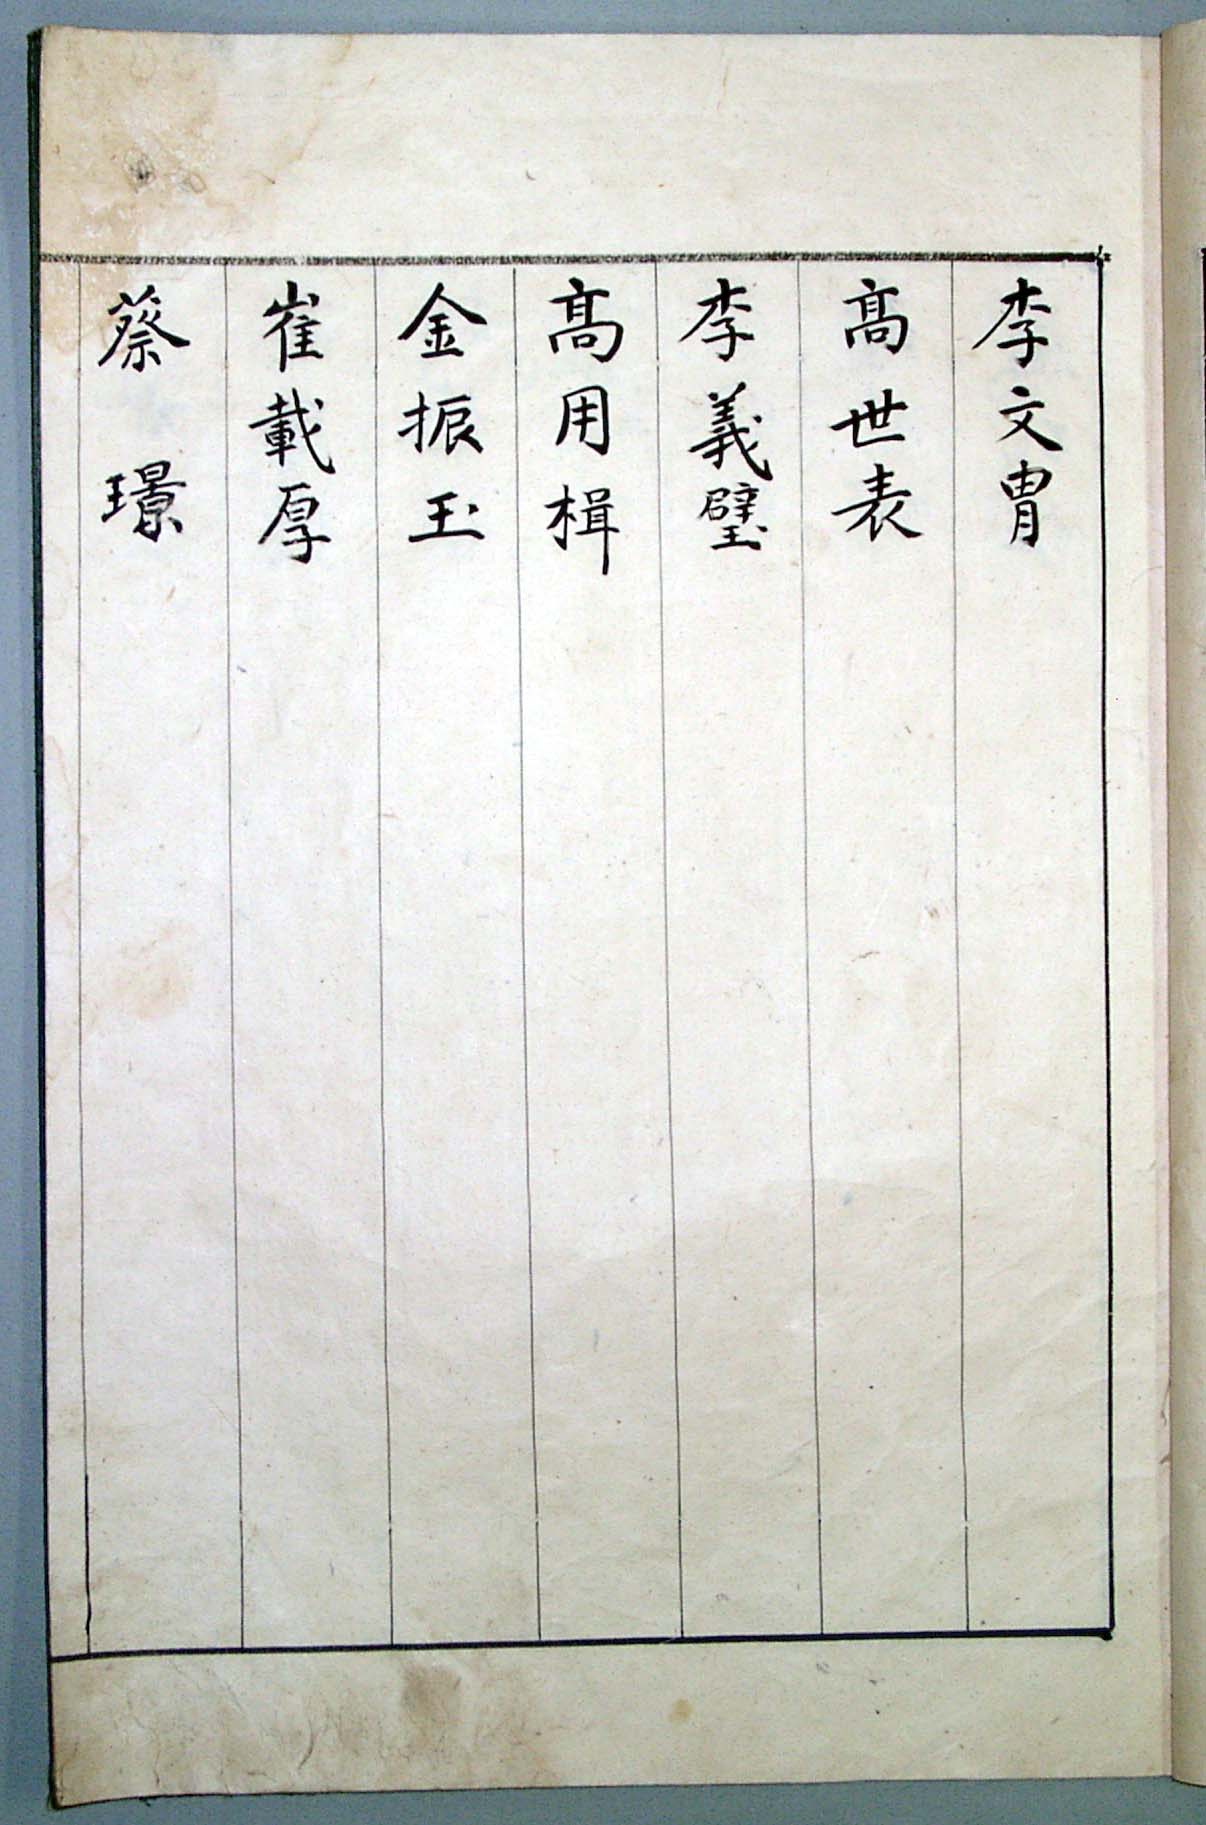 李文冑
高世表
李義壁
髙用楫
金振玉
崔載厚
蔡璟